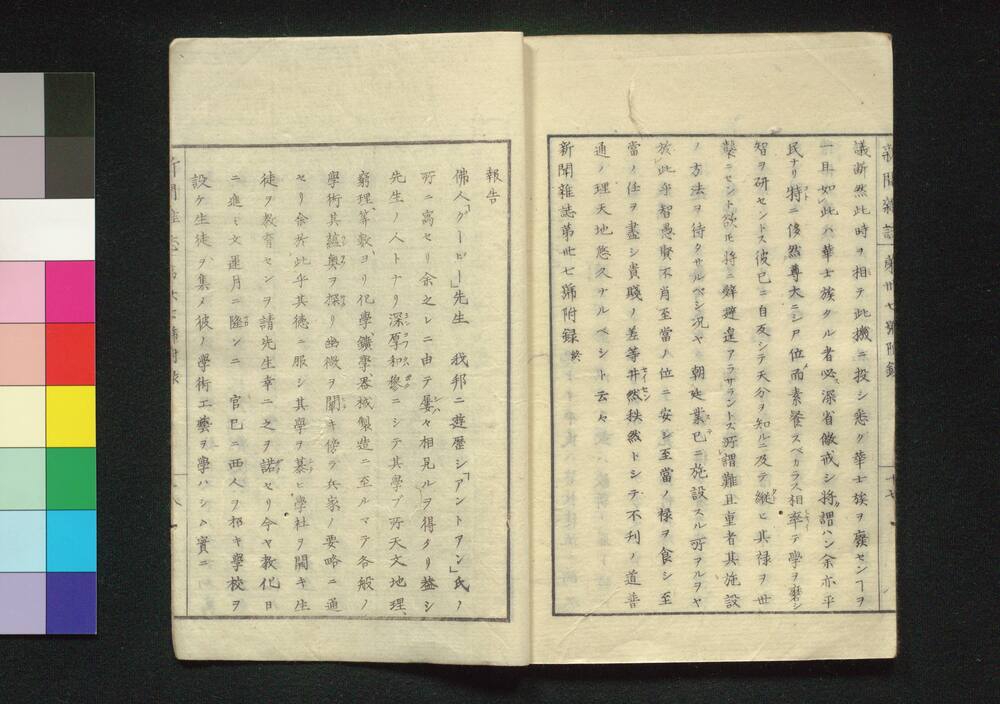 新聞雜誌 第卅七號附錄
議断然此時ヲ相テ此機ニ投シ悉ク華士族ヲ癈センヿヲ
一旦如此ハ華士族タル者必深省儆戒シ将謂ハン余亦平
民ナリ特ニ俊然尊大ニシ尸位而素餐スベカラス相率テ學ヲ磨シ
智ヲ研セントス彼已ニ自反シテ天分ヲ知ルニ及テ縦ヒ其禄ヲ世
襲ニセント欲モ将ニ辭避遑アラサラントス所謂難且重者其施設
ノ方法ヲ待タサルベシ况ヤ 朝廷業已ニ施設スル所アルヲヤ
於此乎智愚賢不肖至當ノ位ニ安シ至當ノ禄ヲ食シ至
當ノ任ヲ盡シ貴賤ノ差等井然秩然トシテ不刋ノ道普
通ノ理天地悠久ナルベシト云々
新聞雜誌第卅七號附録 終
十七
報告
佛人「グーピー」先生 我邦ニ遊歴シ「アントアン」氏ノ
所ニ寓セリ余之レニ由テ屢々相見ルヲ得タリ蓋シ
先生ノ人トナリ深厚和穆ニシテ其學ブ所天文地理、
窮理、算数、ヨリ化學、鑛學、器械製造ニ至ルマテ各般ノ
學術其蘊奥ヲ探リ幽微ヲ闡キ傍ラ兵家ノ要略ニ通
セリ余於此乎其徳ニ服シ其學ヲ慕ヒ學社ヲ開キ生
徒ヲ教育センヲ請先生幸ニ之ヲ諾セリ今ヤ教化日
ニ進ミ文運月ニ隆ンニ 官已ニ西人ヲ招キ學校ヲ
設ケ生徒ヲ集メ彼ノ學術工藝ヲ學ハシム實ニ